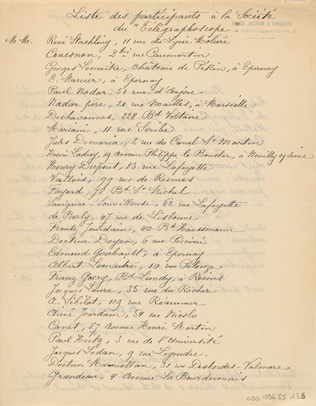 Liste des participants à la Société
du "Télégraphoscope".
M.M. René Staehling, 11 rue de Lyne Molière
Couesnon, 2 bis rue Caumartin
Georges Lemaître, Château de Pékin, à Epernay
E. Mercier, à Epernay
Paul Nadar, 51 rue d'Anjou
Nadar père, 21 rue Noailles, à Marseille
Dechavannes, 228 Bd Voltaire
Mariani, 11 rue Scribe
Jules Demaria, 2 rue du Canal St Martin
Henri Ladrey, 19 avenue Philippe le Boucher, à Neuilly s/ Seine
Henry Dupont, 13 rue Lafayette
Vallois, 99 rue de Rennes
Fayard, 78 Bd St Michel
Savignac 62 rue Lafayette
de Barly, 47 rue de Lisbonne
Frantz Jourdain, 40 Bd Haussmann
Docteur Doyen, 6 rue Piccini
Edmond Goubault, à Epernay
Albert Lemaitre, 10 rue
Franz Bd Lundy, à Reims
Jacques 35 rue du Rocher
A. Sibilat, 119 rue Réaumur
Aimé Jourdain, 54 rue Nicolo
Canet, 87 avenue Henri Martin
Paul Harty, 3 rue de l'Université
Jacques Sedan, 9 rue Legendre.
Docteur 31 rue Desbordes-Valmore
Grandeau, 4 avenue La Bourdonnais